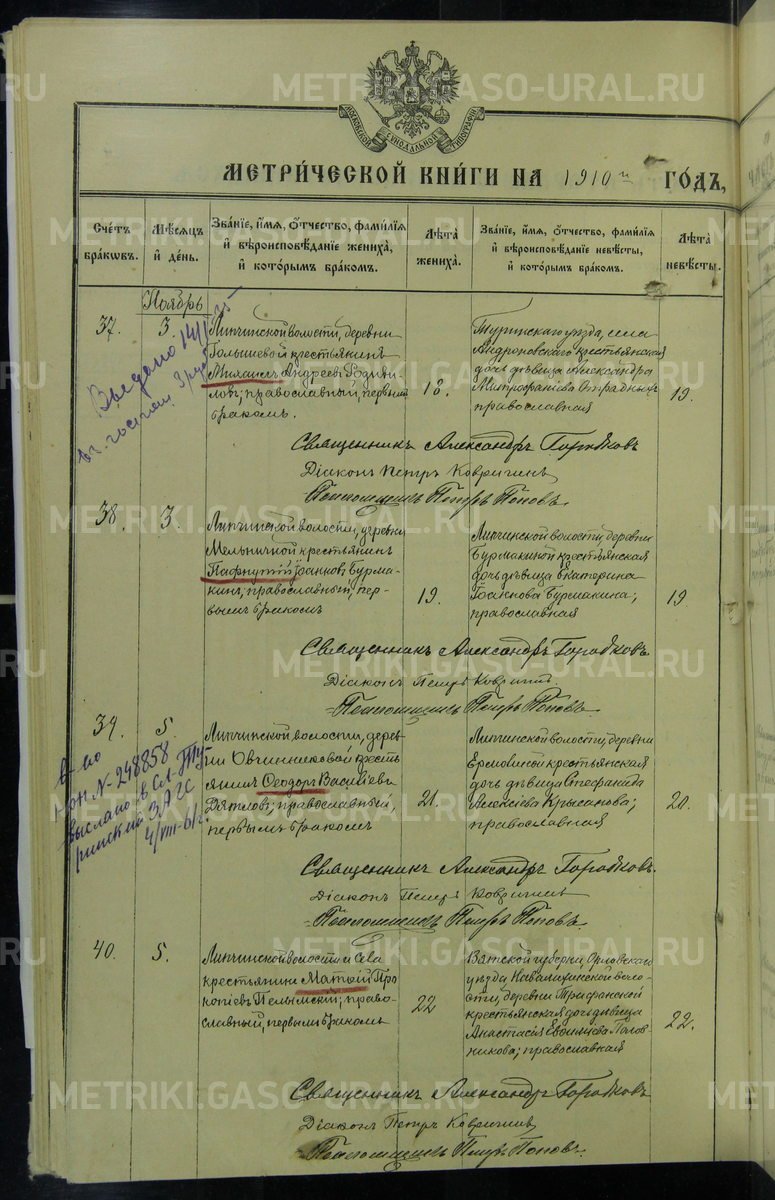 METRIKI.GASO-URAL.RU
МОСКОВСКОЙ СѴНОДАЛЬНОЙ ТИПОГРАФІИ
МЕТРИ́ЧЕСКОЙ КНИ́ГИ НА 1910 ГО́ДЪ,
Сче́тъ бра́ковъ.
Мѣ́сяцъ и҆ де́нь.
Зва́нїе, и҆́мѧ, ѻ҆́тчество, фами́лїѧ
и҆ вѣроисповѣ́данїе жениха̀,
и҆ кото́рымъ бра́комъ.
Лѣ́та жениха̀.
Зва́нїе, и҆́мѧ, ѻ҆́тчество, фами́лїѧ
и҆ вѣроисповѣ́данїе невѣ́сты,
и҆ кото́рымъ бра́комъ.
Лѣ́та невѣ́сты.
Ноябрь
37.
3.
Липчинской волости, деревни
Голышевой крестьянинъ
Михаилъ Андреевъ
православный, первымъ
бракомъ.
18.
Туринскаго уѣзда, села
Андроновскаго крестьянская
дочь дѣвица Александра
Митрофанова
православная
19.
Священникъ Александръ Городковъ
Діаконъ Петръ Ковригинъ
Петръ Поповъ.
38.
3.
Липчинской волости, деревни
Мельничной крестьянинъ
Пафнутій Іоанновъ Бурма-
кинъ, православный, пер-
вымъ бракомъ
19.
Липчинской волости, деревни
Бурмакиной крестьянская
дочь дѣвица Екатерина
Іоаннова Бурмакина;
православная
19
Священникъ Александръ Городковъ
Діаконъ Петръ Ковригинъ
Петръ Поповъ.
39
5.
Липчинской волости, дерев-
ни Овчинниковой кресть
янинъ Ѳеодоръ Васильевъ
Дятловъ; православный,
первымъ бракомъ
21.
Липчинской волости, деревни
Ерёминой крестьянская
дочь дѣвица Стефанида
Алексіева Крысанова;
православная
20.
Священникъ Александръ Городковъ.
Діаконъ Петръ Ковригинъ
Петръ Поповъ.
40.
5.
Липчинской волости и села
крестьянинъ Матѳій Про
копіевъ Пелымскій; право-
славный, первымъ бракомъ
22
Вятской губерніи, Орловскаго
уѣзда волос-
ти, деревни
крестьянская дочь дѣвица
Анастасія Евѳиміева Полов
никова; православная
22.
Священникъ Александръ Городковъ
Діаконъ Петръ Ковригинъ
Петръ Поповъ.
Выдано
N-248858
выслано в Сл-Ту-
ринский ЗАГС
4/VIII-61г.